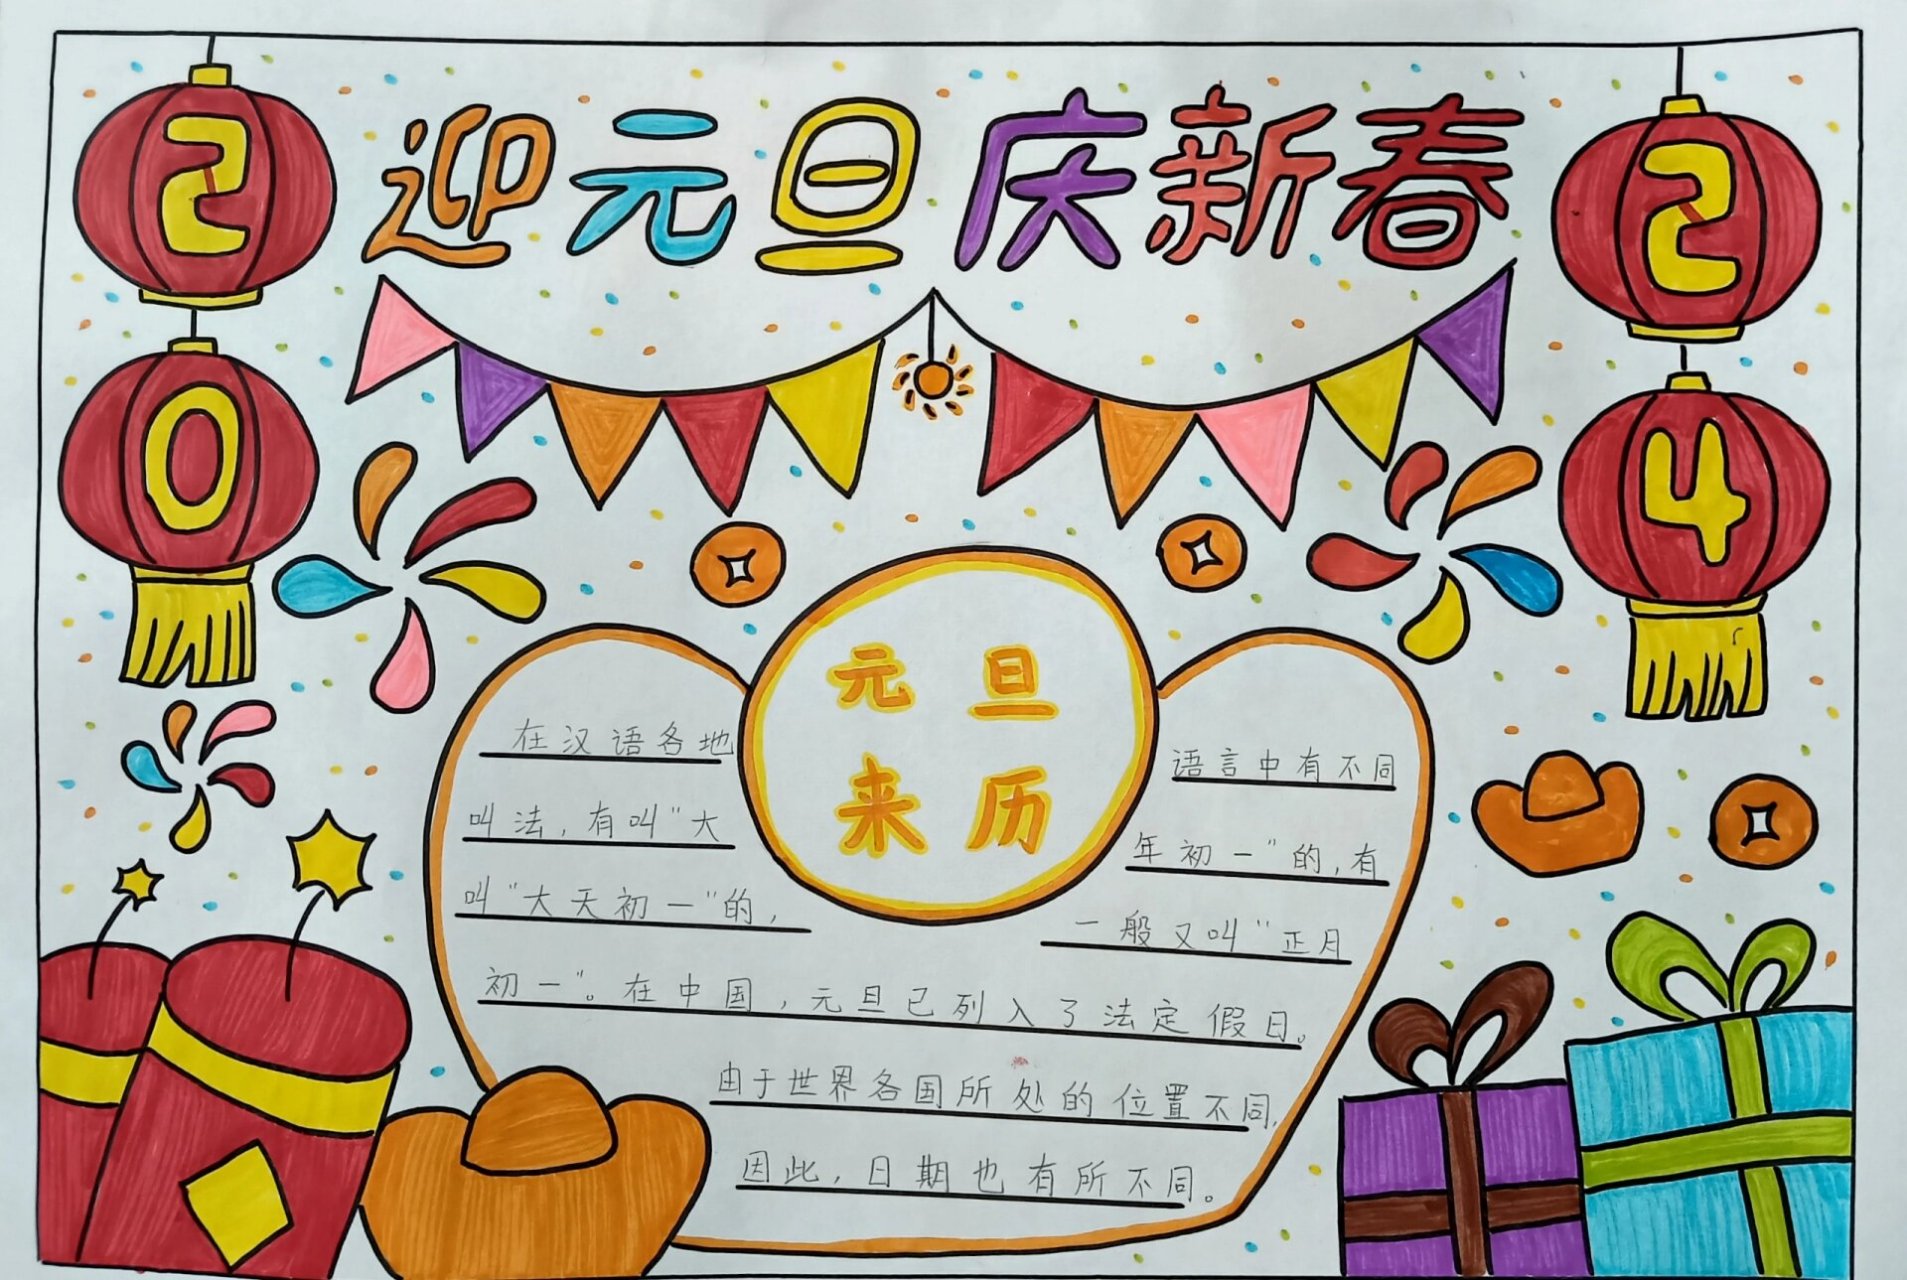 迎元旦庆新春
2
0
2
4
元旦
来历
在汉语各地语言中有不同
叫法，有叫"大年初一"的，有
叫"大天初一"的，一般又叫"正月
初一"。在中国，元旦已列入了法定假日。
由于世界各国所处的位置不同，
因此，日期也有所不同。